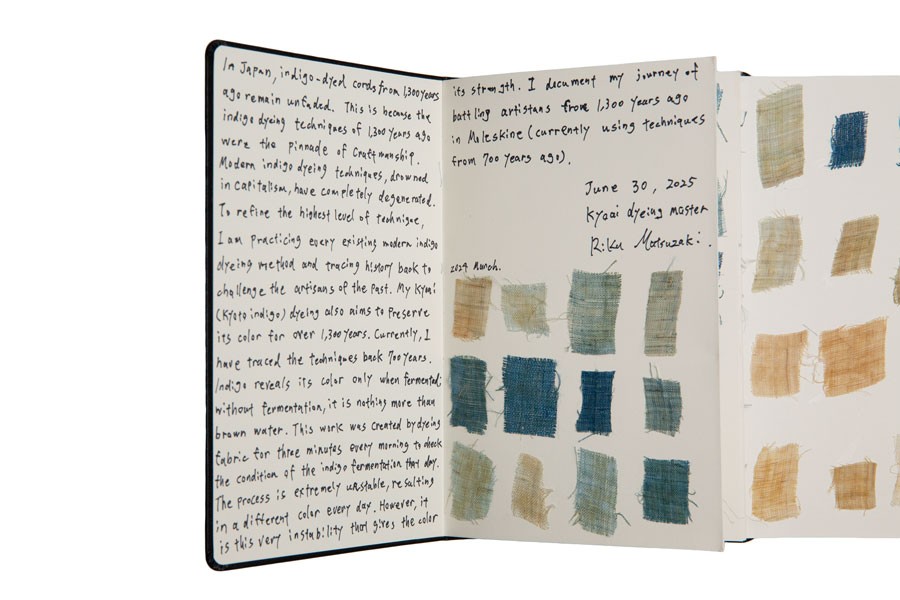 In Japan, indigo-dyed cords from 1,300 years
ago remain unfaded. This is because the
indigo dyeing techniques of 1,300 years ago
were the pinnacle of craftmanship.
Modern indigo dyeing techniques, drowned
in capitalism, have completely degenerated.
To refine the highest level of technique,
I am practicing every existing modern indigo
dyeing method and tracing history back to
challenge the artisans of the past. My Kyoai
(Kyoto indigo) dyeing also aims to preserve
its color for over 1,300 years. Currently, I
have traced the techniques back 700 years.
Indigo reveals its color only when fermented;
without fermentation, it is nothing more than
brown water. This work was created by dyeing
fabric for three minutes every morning to check
the condition of the indigo fermentation that day.
The process is extremely unstable, resulting
in a different color every day. However, it
is this very instability that gives the color
its strength. I document my journey of
battling artistans from 1,300 years ago
in Moleskine (currently using techniques
from 700 years ago).
June 30, 2025
Kyoai dyeing master
Riku Matsuzaki.
2024 March.